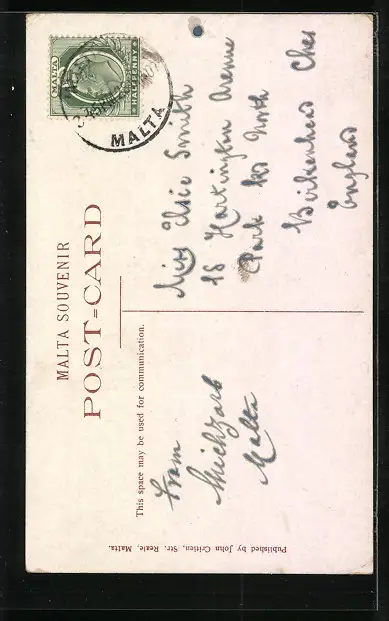 MALTA
HALFPENNY
MALTA
MALTA SOUVENIR
POST=CARD
This space may be used for communication.
From
Malta
Miss Elsie Smith
18 Hartington Avenue
Park Rd North
Birkenhead Ches
England
Published by John Critien, Str. Reale, Malta.